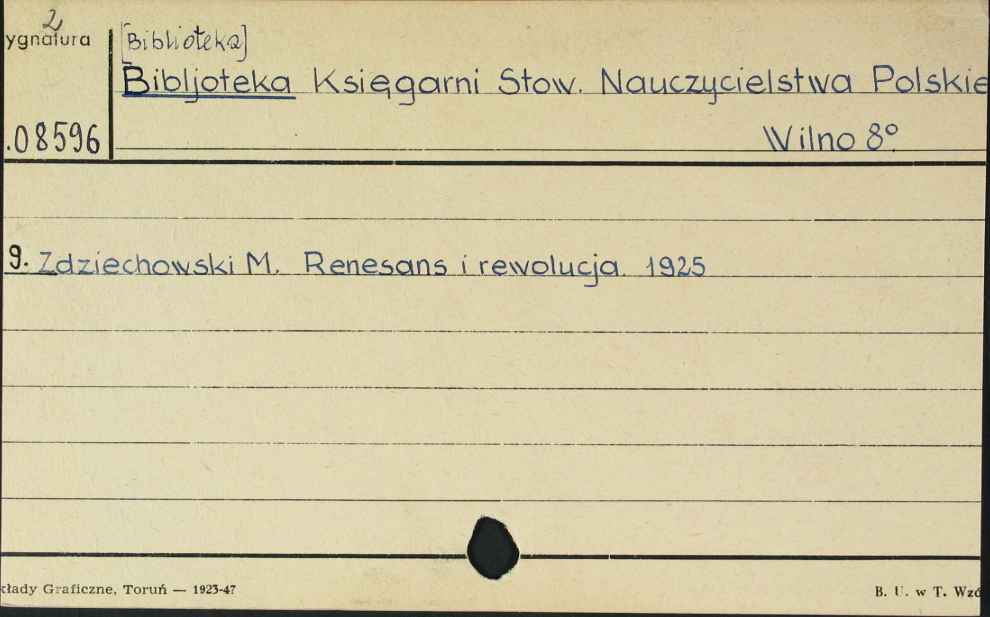 2
ygnatura
[Biblioteka]
Bibljoteka Księgarni Stow. Nauczycielstwa Polskie
.08596
Wilno 8°.
9. Zdziechowski M. Renesans i rewolucja. 1925
kłady Graficzne, Toruń — 1923-47
B. U. w T. Wzó